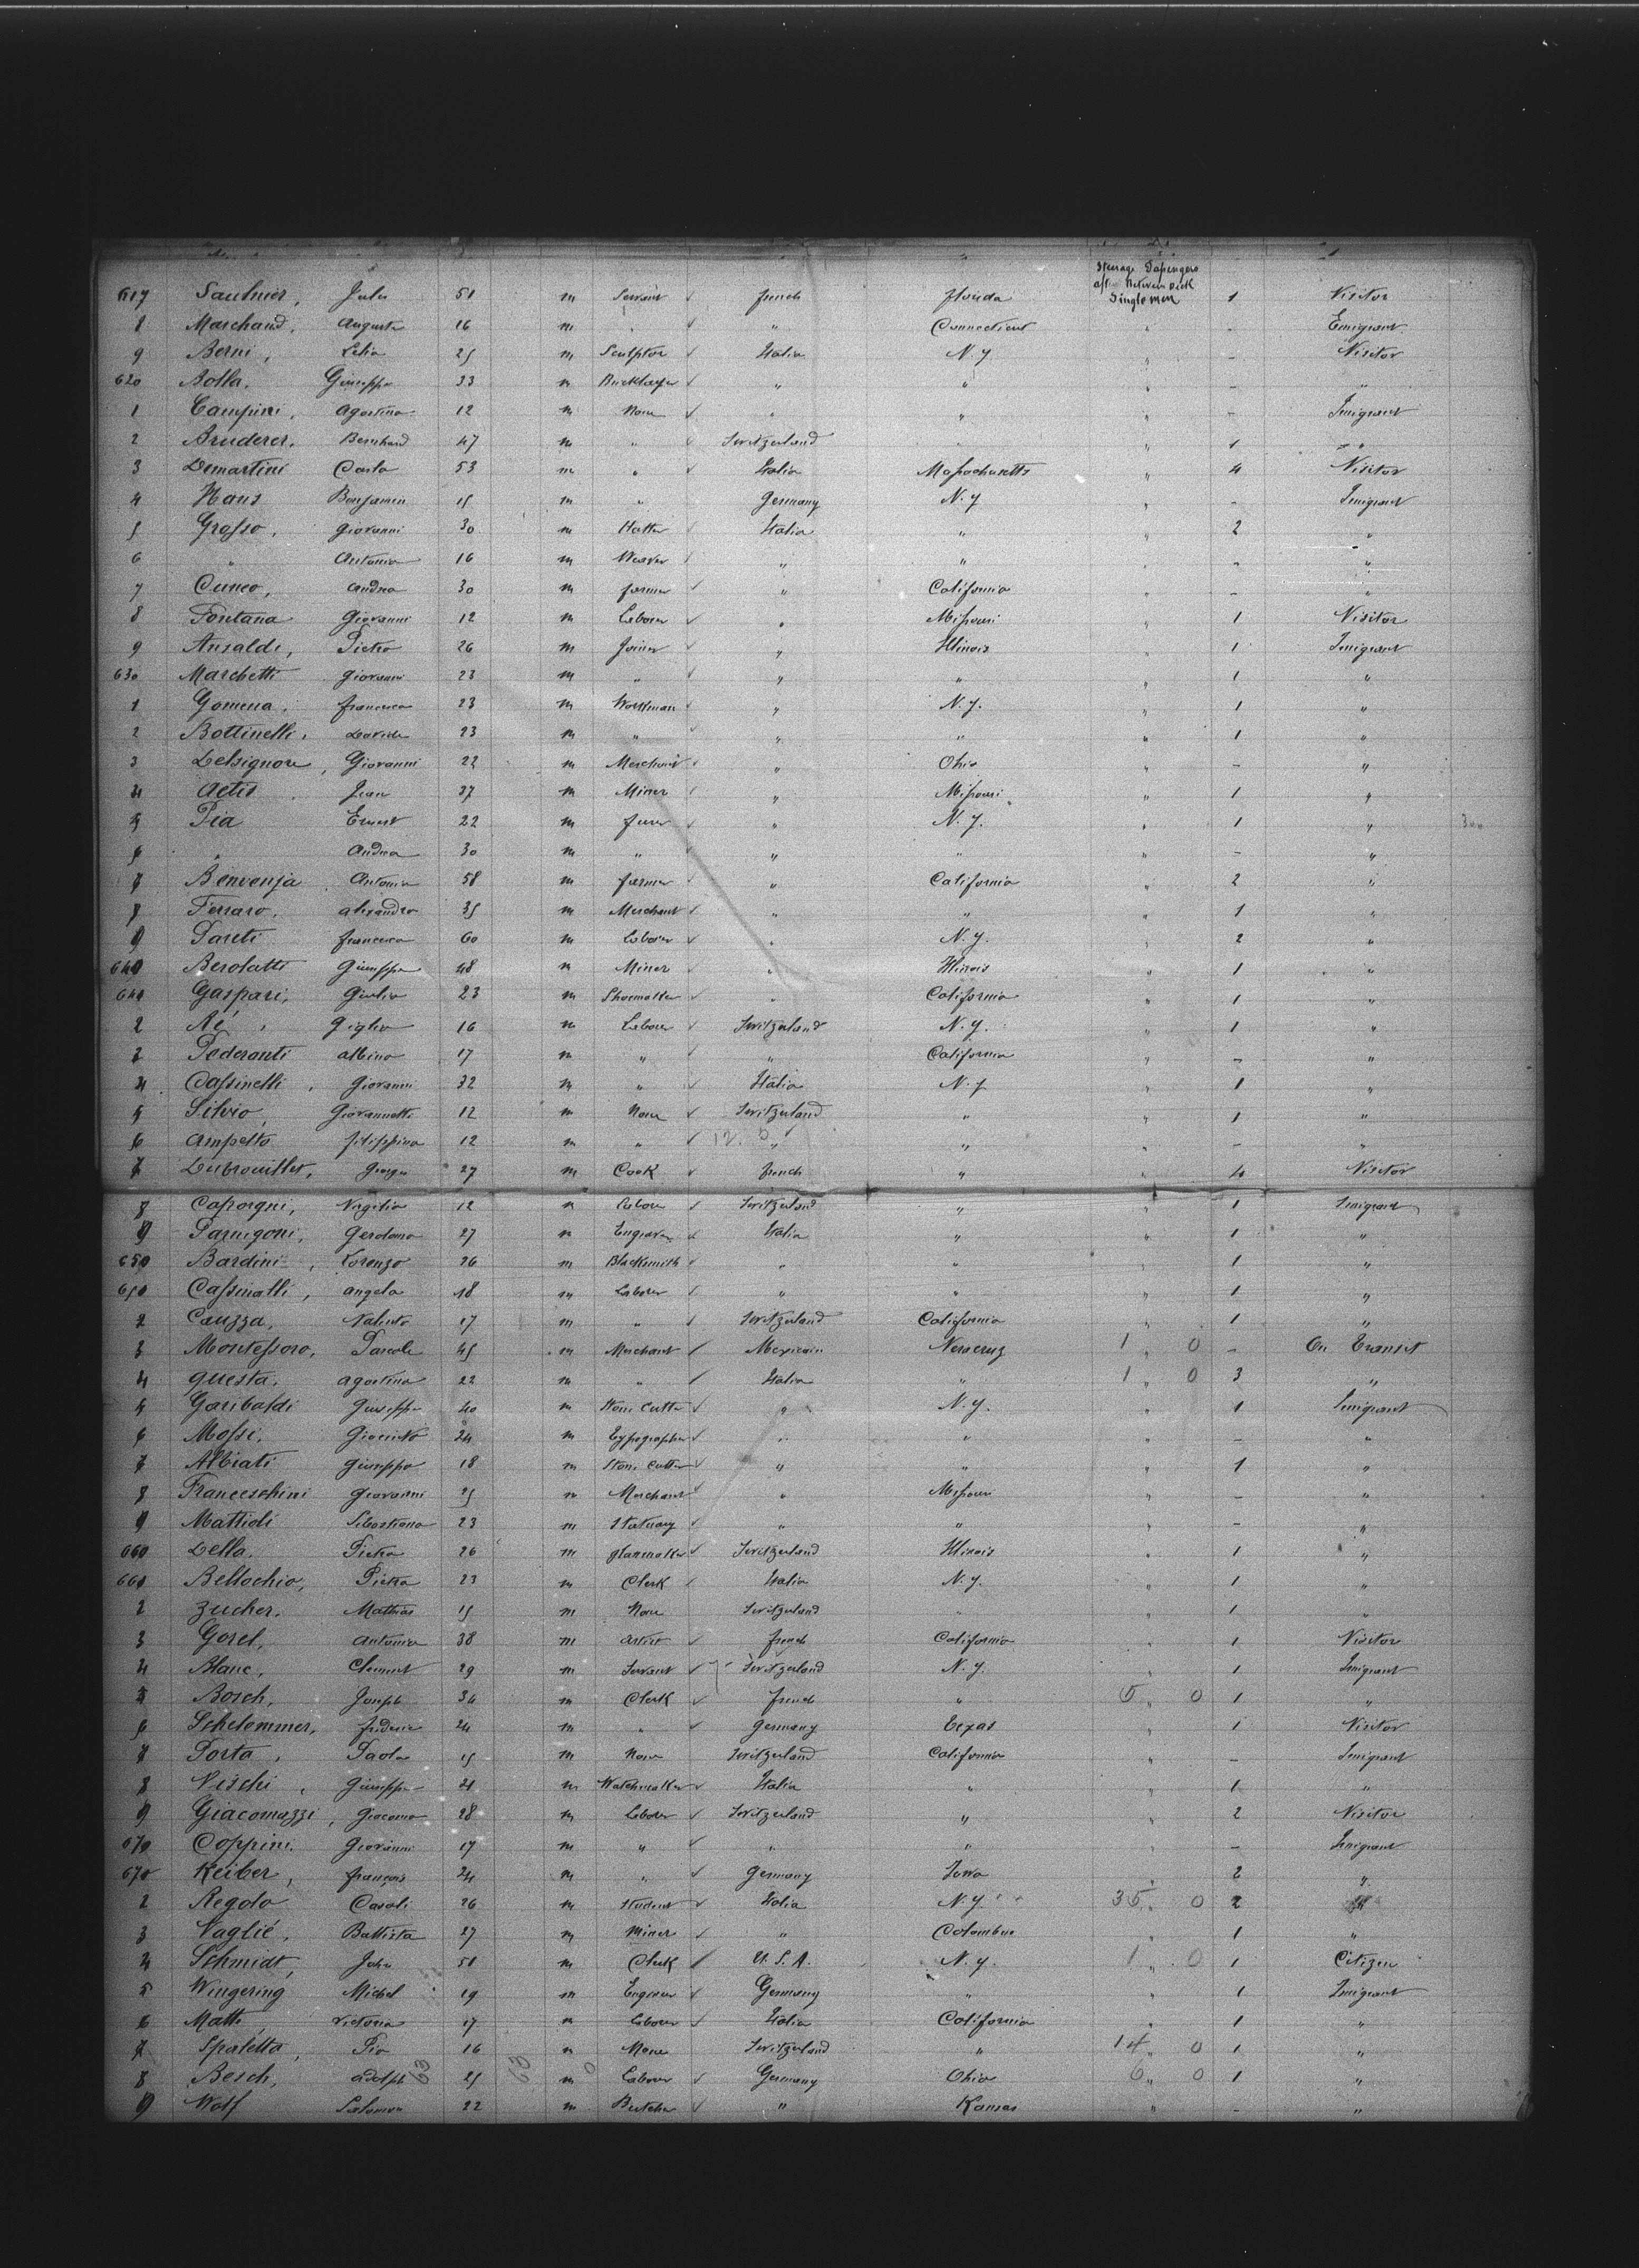 Steerage Passengers
aft Between deck
617 Saulnier, Jules 51 m Servant ✓ french florida Single men 1 Visitor
8 Marchand, Auguste 16 m " ✓ " Connecticut " - Emigrant
9 Berni, Lelio 25 m Sculptor ✓ Italia N.Y " - Visitor
620 Botta, Giuseppe 33 m Bricklayer ✓ " " " - "
1 Campini, Agostino 12 m None ✓ " " " - Imigrant
2 Bruderer, Bernhard 47 m " ✓ Switzerland " " 1 "
3 Demartini Carlo 53 m " ✓ Italia Massachusetts " 4 Visitor
4 Haus Benjamin 15 m " Germany N.Y " - Imigrant
5 Grosso, Giovanni 30 m Hatter ✓ Italia " " 2 "
6 " Antonio 16 m Weaver " " - "
7 Cuneo, Andrea 30 m farmer ✓ " California " - "
8 Fontana Giovanni 12 m Laborer ✓ " Missouri " 1 Visitor
9 Ansaldi, Pietro 26 m Joiner ✓ " Illinois " 1 Imigrant
630 Marchetti Giovanni 23 m " ✓ " " " 1 "
1 Gomena, francesco 23 m Workman ✓ " N.Y. " 1 "
2 Bottinelli, Davide 23 m " ✓ " " " 1 "
3 Delsignore, Giovanni 22 m Merchant ✓ " Ohio " - "
4 Actis Jean 37 m Miner ✓ " Missouri " 1 "
5 Pia Ernest 22 m ✓ " N.Y. " 1 "
6 " Andrea 30 m " ✓ " " " - "
7 Benvenja Antonio 58 m farmer ✓ " California " 2 "
8 Ferraro, Alexandro 35 m Merchant ✓ " " " 1 "
9 Pareti francesco 60 m Laborer ✓ " N.Y. " 2 "
640 Berolatti Giuseppe 48 m Miner ✓ " Illinois " 1 "
641 Gaspari, Giulio 23 m Shoemaker ✓ " California " 1 "
2 Ré, Giglio 16 m Laborer ✓ Switzerland N.Y. " 1 "
3 Pedranti Albino 17 m " ✓ " California " - "
4 Cassinelli, Giovanni 32 m " ✓ Italia N.Y " 1 "
5 Silvio, Giovannetti 12 m None ✓ Switzerland " " 1 "
6 Ampelto filippino 12 m " ✓ " " " - "
7 Dubrouillet, George 27 m Cook ✓ french " " 4 Visitor
8 Caporgni, Virgilio 12 m Laborer ✓ Switzerland " " 1 Imigrant
9 Parnigoni, Gerolomo 27 m Engraver ✓ Italia " " 1 "
650 Bardini, Lorenzo 26 m Blacksmith ✓ " " " 1 "
651 Cassinatti, Angelo 18 m Laborer ✓ " " " 1 "
2 Cauzza, Valento 17 m " ✓ Switzerland California " 1 "
3 Montessoro, Pascale 45 m Merchant ✓ Mexicain Veracruz 1 " 0 - On Transit
4 Questa, Agostino 22 m " ✓ Italia " 1 " 0 3 "
5 Garibaldi Giuseppe 40 m Stone Cutter " N.Y. " 1 Imigrant
6 Mossi, Giacinto 24 m Typographer ✓ " " " - "
7 Albiati Giuseppe 18 m Stone Cutter ✓ " " " 1 "
8 Franceschini Giovanni 25 m Merchant ✓ " Missouri " - "
9 Mattioli Sibastiano 23 m Statuary ✓ " " " - "
660 Della, Pietro 26 m glassmaker ✓ Switzerland Illinois " 1 "
661 Bellochio, Pietro 23 m Clerk ✓ Italia N.Y. " 1 "
2 Zucher, Mathias 15 m None Switzerland " " 1 "
3 Gorel, Antonio 38 m Artist ✓ french California " 1 Visitor
4 Blanc, Clement 29 m Servant ✓ Switzerland N.Y. " 1 Imigrant
5 Bosch, Joseph 34 m Clerk ✓ french " 5 " 0 1 "
6 Schelommer, frederic 24 m " ✓ Germany Texas " 1 Visitor
7 Porta, Paolo 15 m None Switzerland California " - Imigrant
8 Vischi, Giuseppe 21 m Watchmaker ✓ Italia " " 1 "
9 Giacomazzi, Giacomo 28 m Laborer ✓ Switzerland " " 2 Visitor
670 Coppini, Giovanni 17 m " ✓ " " " - Imigrant
671 Keiber, françois 24 m " ✓ Germany Iowa " 2 "
2 Regolo Casali 26 m Student ✓ Italia N.Y. 35 " 0 2
3 Vaglié, Battista 27 m Miner ✓ " Columbus " 1 "
4 Schmidt, John 51 m Clerk ✓ U.S.A. N.Y. 1 " 0 1 Citizen
5 Wingering Michel 19 m Engraver ✓ Germany " " 1 Imigrant
6 Matti, Victorio 17 m Laborer ✓ Italia California " 1 "
7 Spaletta, Pio 16 m None Switzerland " 14 " 0 1 "
8 Besch, Adolph 63 25 63 m 0 Laborer ✓ Germany Ohio 6 " 0 1 "
9 Wolf Salomon 22 m Butcher ✓ " Kansas " - "